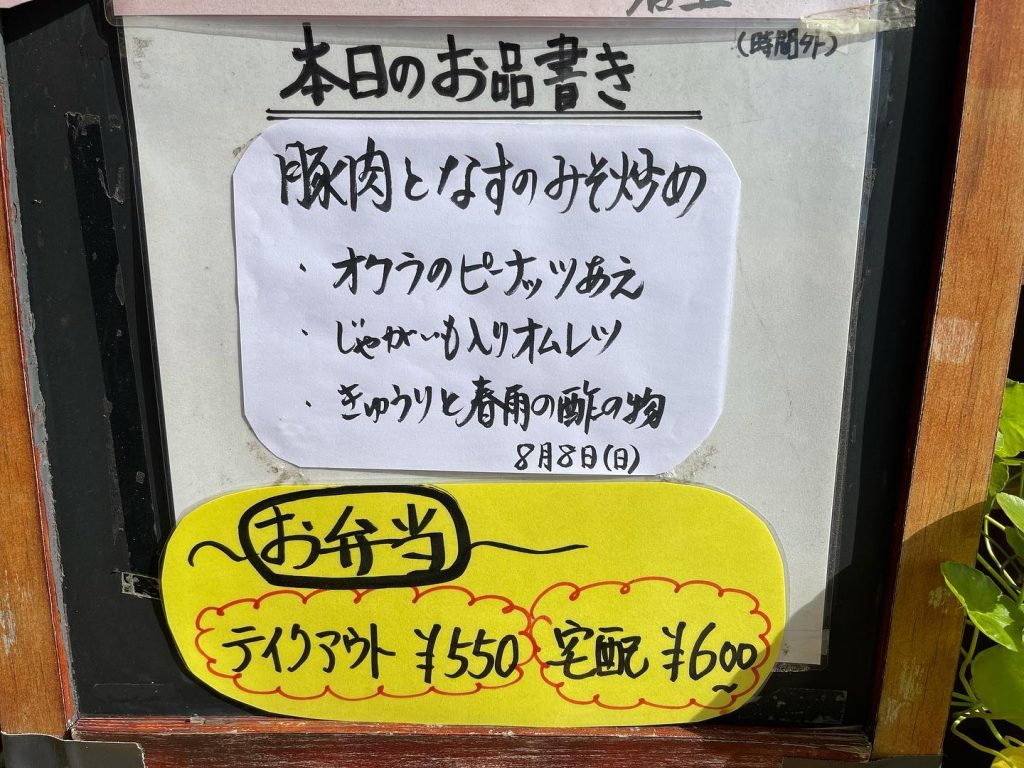 (時間外)
本日のお品書き
豚肉となすのみそ炒め
・オクラのピーナッツあえ
・じゃがいも入りオムレツ
・きゅうりと春雨の酢の物
8月8日(日)
お弁当
テイクアウト ¥550
宅配 ¥600~